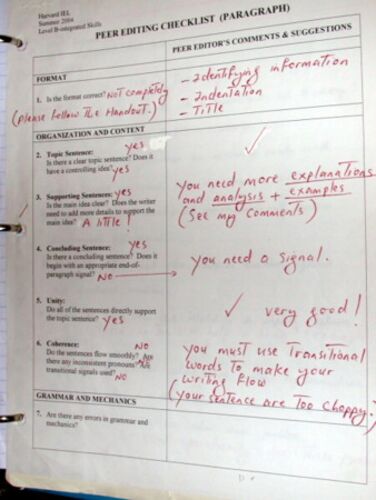 Harvard IEL
Summer 2004
Level B-integrated Skills
PEER EDITING CHECKLIST (PARAGRAPH)
PEER EDITOR'S COMMENTS & SUGGESTIONS
FORMAT
1. Is the format correct? Not completely
(please follow the Handout.)
- Identifying information
- Indentation
- Title
ORGANIZATION AND CONTENT
2. Topic Sentence: yes
Is there a clear topic sentence? Does it
have a controlling idea? yes
✓
3. Supporting Sentences: yes
Is the main idea clear? Does the writer
need to add more details to support the
main idea? A little!
You need more explanations
and analysis + examples
(See my comments)
4. Concluding Sentence: yes
Is there a concluding sentence? Does it
begin with an appropriate end-of-
paragraph signal? NO →
you need a signal.
5. Unity:
Do all of the sentences directly support
the topic sentence? Yes
✓ very good!
6. Coherence: NO
Do the sentences flow smoothly? Are
there any inconsistent pronouns? Are
transitional signals used? NO
you must use transitional
words to make your
writing flow
(your sentence are too choppy.)
GRAMMAR AND MECHANICS
7. Are there any errors in grammar and
mechanics?